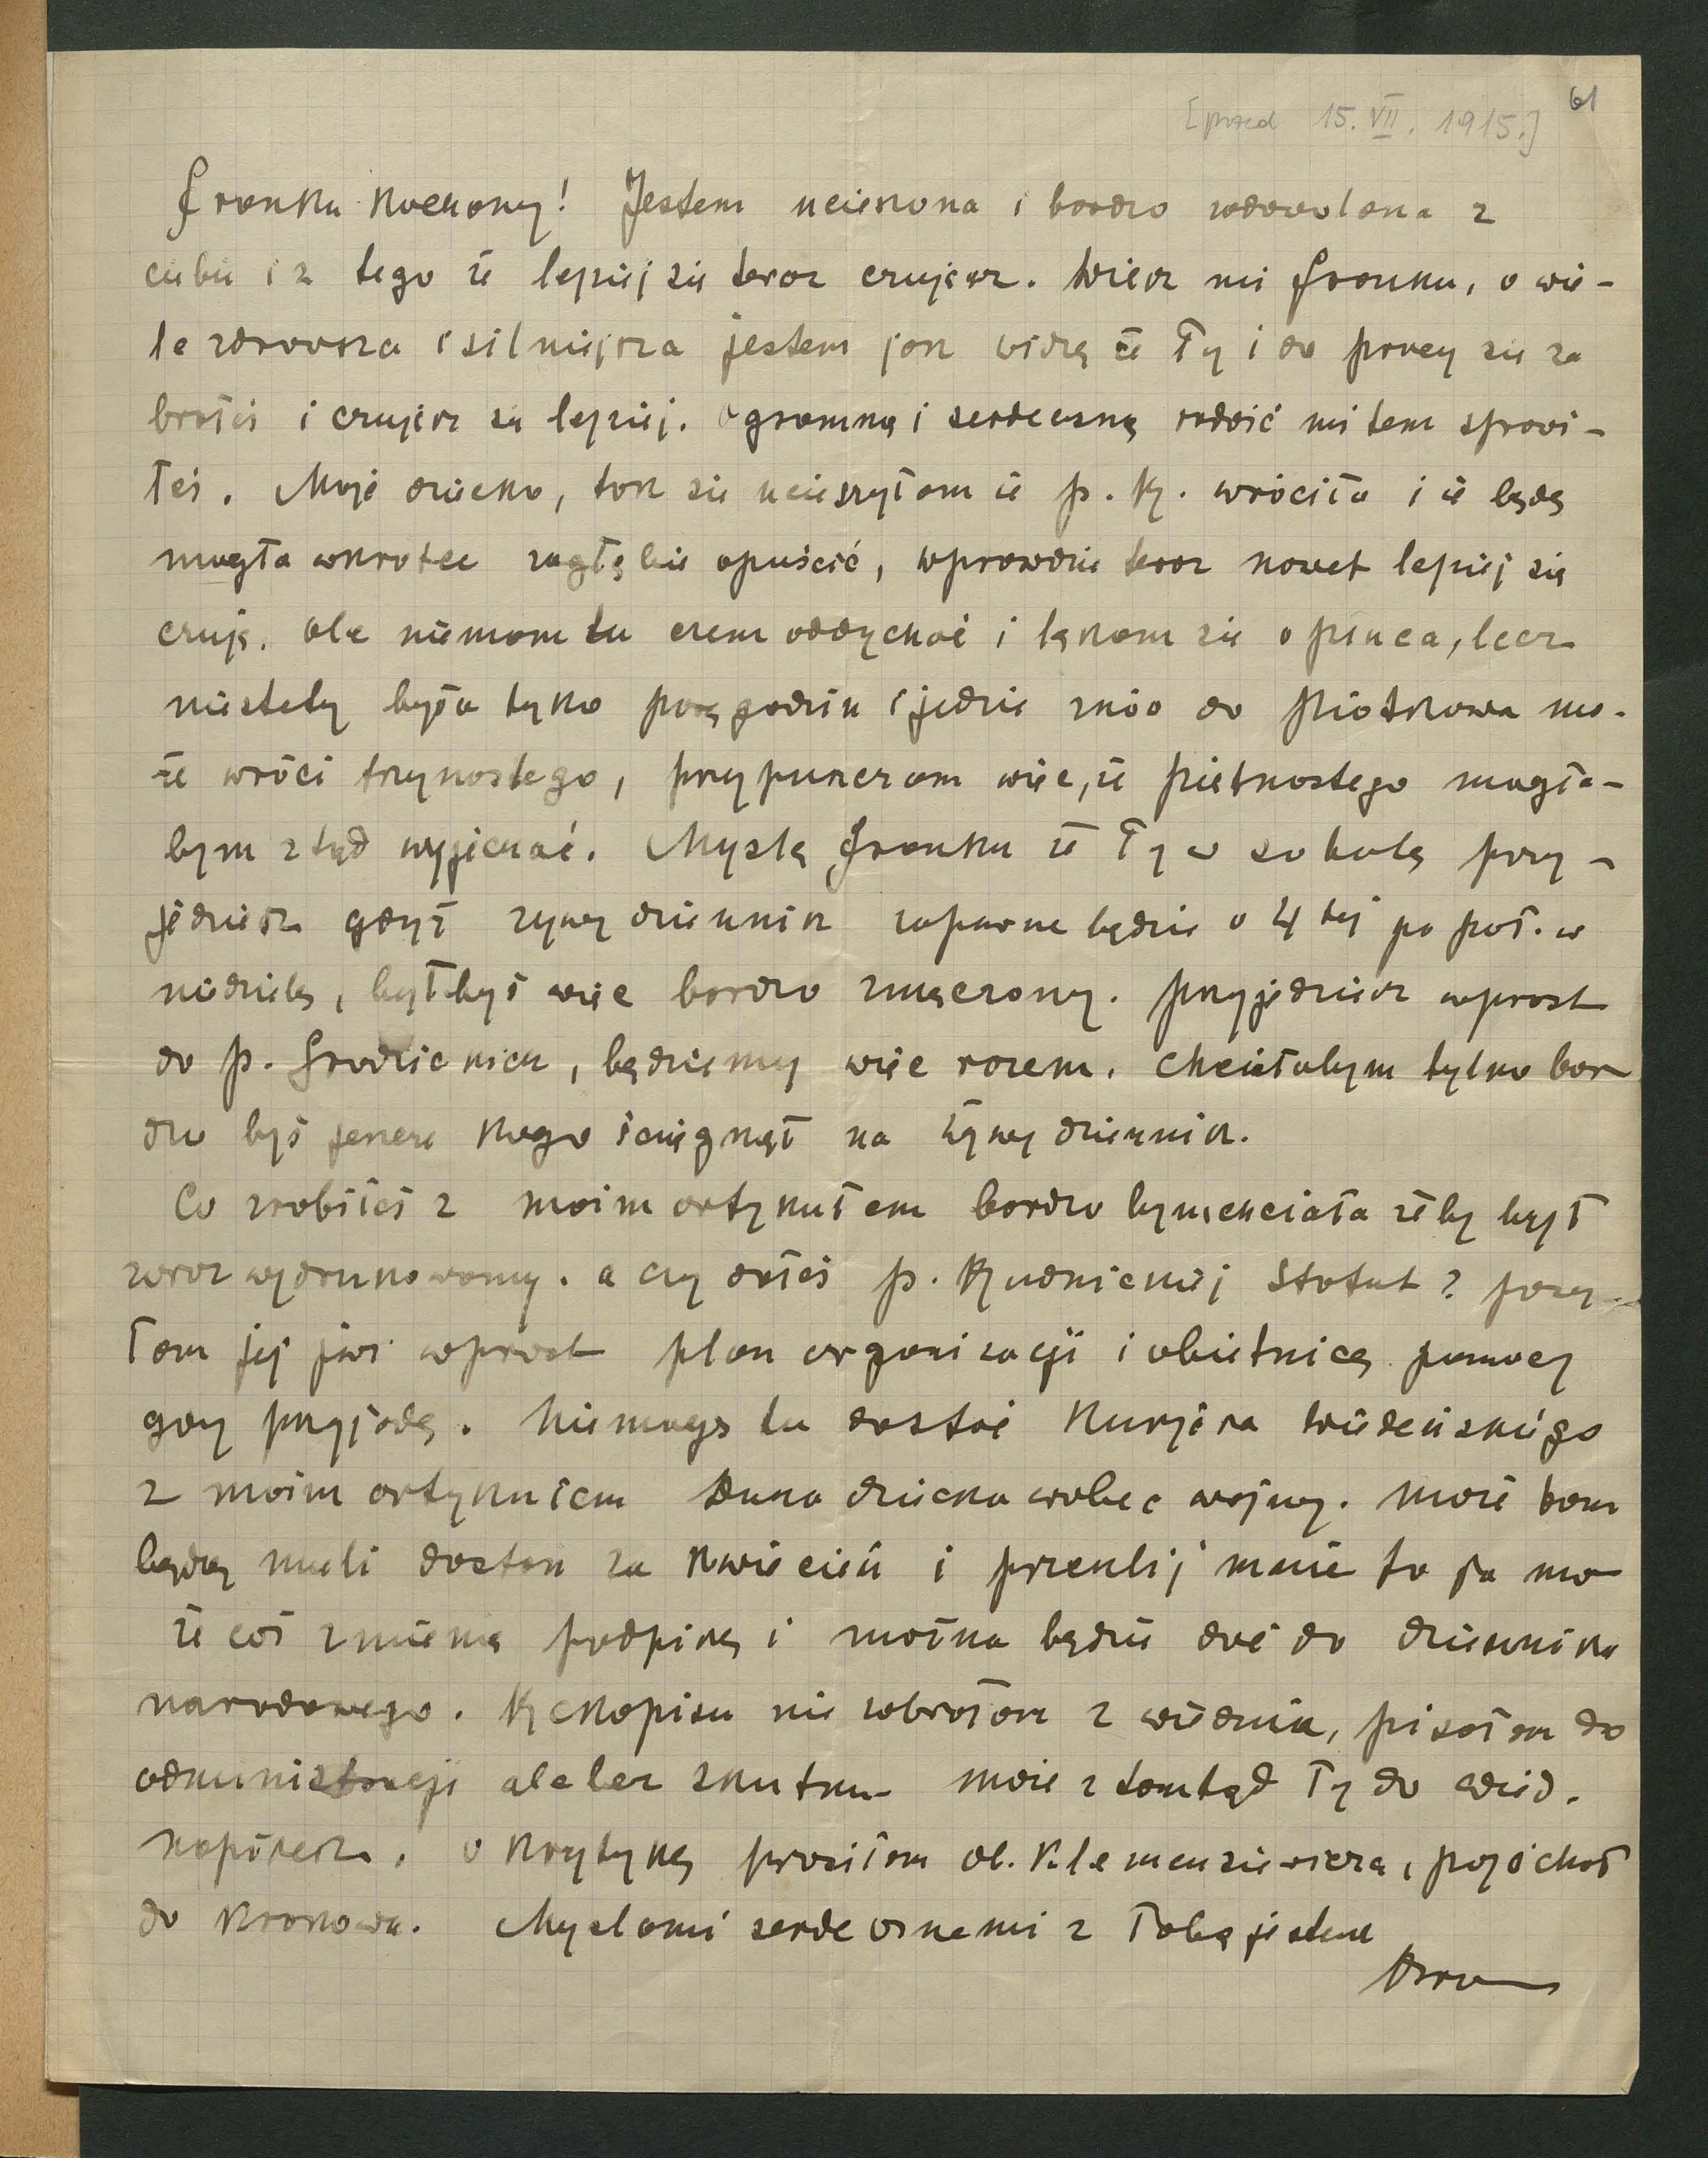 [przed 15. VII. 1915.] 61
Franku kochany! Jestem ucieszona i bardzo zadowolona z
ciebie i z tego że lepiej się teraz czujesz. Wiesz mi Franku, o wie-
le zdrowsza i silniejsza jestem jak widzę że Ty i do pracy się za
brałeś i czujesz się lepiej. Ogromną i serdeczną radość mi tem sprawi-
łeś. Moje dziecko, tak się ucieszyłam że p. Ry. wróciła i że będę
mogła wkrótce zagłębie opuścić, wprawdzie teraz nawet lepiej się
czuję. ale niemam tu czem oddychać i lękam się o płuca, lecz
niestety była tylko parę godzin i jedzie znów do Piotrkowa mo-
że wróci trzynastego, przypuszczam więc, że piętnastego mogła-
bym ztąd wyjechać. Myślę Franku że Ty w sobotę przy-
jedziesz gdyż żywy dziennik zapewne będzie o 4 tej po poł. w
niedzielę, byłbyś więc bardzo zmęczony. przyjedziesz wprost
do p. Grodzickich, będziemy więc razem. Chciałabym tylko bar
dzo byś jeszcze kogo ściągnął na żywy dziennik.
Co zrobiłeś z moim artykułem bardzo bym chciała żeby był
zaraz wydrukowany. a czy dałeś p. Rudnickiej Statut? posy-
łam jej już wprost plan organizacji i obietnicę pomocy
gdy przyjadę. Niemogę tu dostać Kurjera Wiedeńskiego
z moim artykułem Dusza dziecka wobec wojny. Może tam
będą mieli dostań za kwiecień i prześlij mnie to ja mo
że coś zmienię podpiszę i można będzie dać do dziennika
narodowego. Rękopisu nie zabrałam z wiednia, pisałam do
administracji ale bez skutku - może ztamtąd Ty do Wied.
napiszesz. O krytykę prosiłam ob. Klemensiewicza, pojechał
do Krakowa. Myślami serdecznemi z Tobą jestem